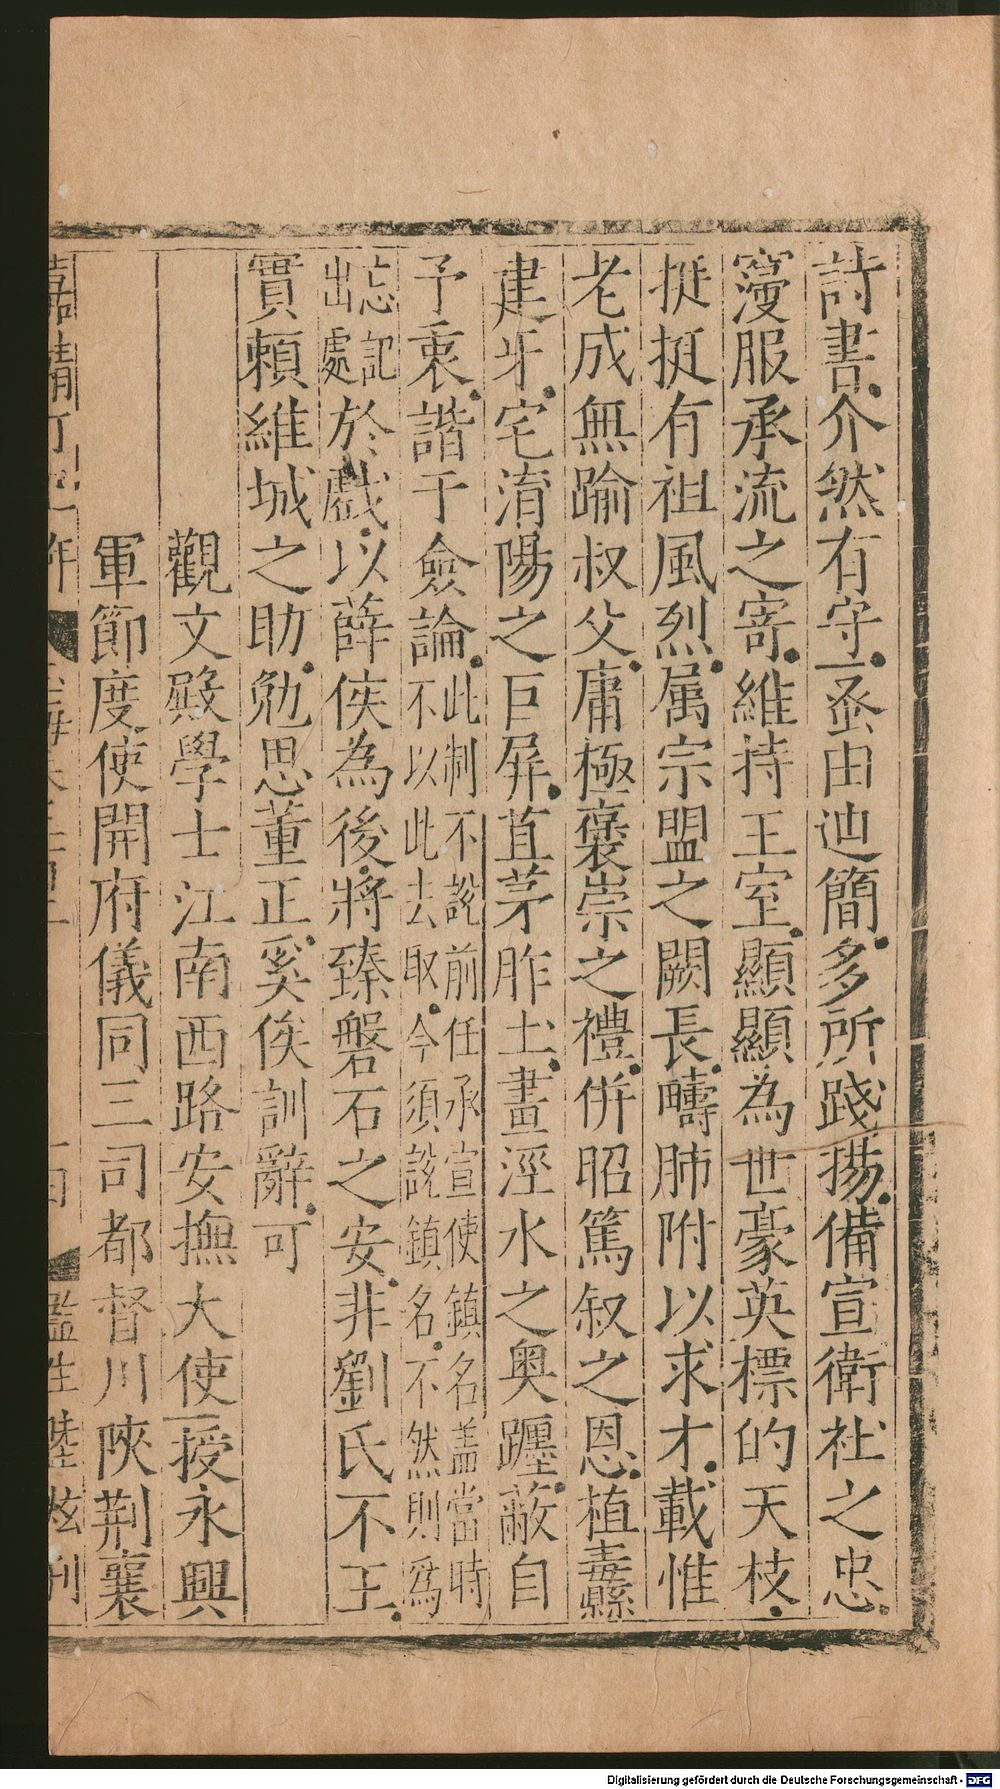 詩書介然有守蚤由迪簡多所踐揚備宣衛社之忠
寖服承流之寄維持王室顯顯為世豪英標的天枝
挺挺有祖風烈属宗盟之闕長疇肺附以求才載惟
老成無踰叔父庸極褒崇之禮併昭篤叙之恩植纛
建牙宅淯陽之巨屏苴茅胙土畫涇水之奥躔蔽自
予衷諧于僉論此制不說前任承宣使鎮名盖當時
不以此去取今須說鎮名不然則爲
忘記
出處於戲以薛侯為後將臻磐石之安非劉氏不王
實頼維城之助勉思董正奚俟訓辭可
觀文殿學士江南西路安撫大使授永興
軍節度使開府儀同三司都督川陝荆襄
監生陸炫刋
Digitalisierung gefördert durch die Deutsche Forschungsgemeinschaft - DFG